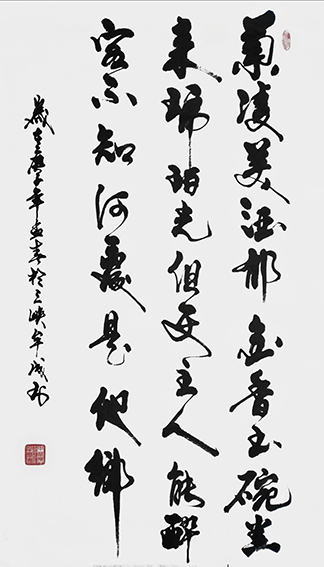 蘭陵美酒郁金香玉碗盛
來琥珀光但使主人能醉
客不知何處是他鄉
歲在庚子年孟春於三峽牟成